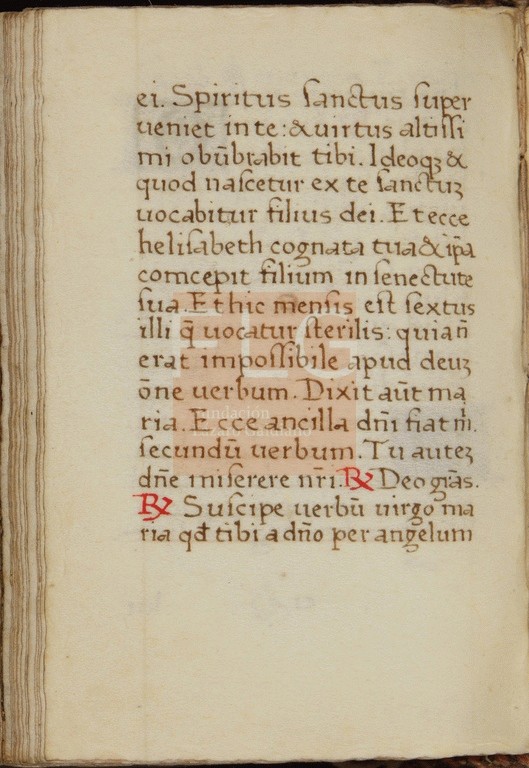 ei. Spiritus sanctus super
ueniet in te: & uirtus altissi
mi obūbrabit tibi. Ideoqȝ &
quod nascetur ex te sanctuȝ
uocabitur filius dei. Et ecce
helisabeth cognata tua & ip̄a
comcepit filium in senectute
sua. Et hic mensis est sextus
illi q̄ uocatur sterilis: quia n̄
erat impossibile apud deuȝ
ōne uerbum. Dixit aūt ma
ria. Ecce ancilla dn̄i fiat m̄.
secundū uerbum. Tu auteȝ
dn̄e miserere nr̄i. ℟ Deo grās.
℟ Suscipe uerbū uirgo ma
ria qđ tibi a dn̄o per angelum
FLG
Fundación
Lázaro Galdiano